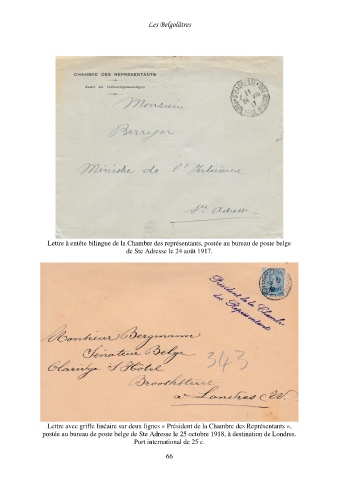 Les Belgolâtres
CHAMBRE DES REPRÉSENTANTS
Monsieur
Berryer
Ministre de l'Intérieur
Ste Adresse
Lettre à entête bilingue de la Chambre des représentants, postée au bureau de poste belge
de Ste Adresse le 24 août 1917.
Président de la Chambre
des Représentants
Monsieur Bergmann
Sénateur Belge
343
Claridge's Hôtel
Brookstreet
à Londres (W.
Lettre avec griffe linéaire sur deux lignes « Président de la Chambre des Représentants »,
postée au bureau de poste belge de Ste Adresse le 25 octobre 1918, à destination de Londres.
Port international de 25 c.
66